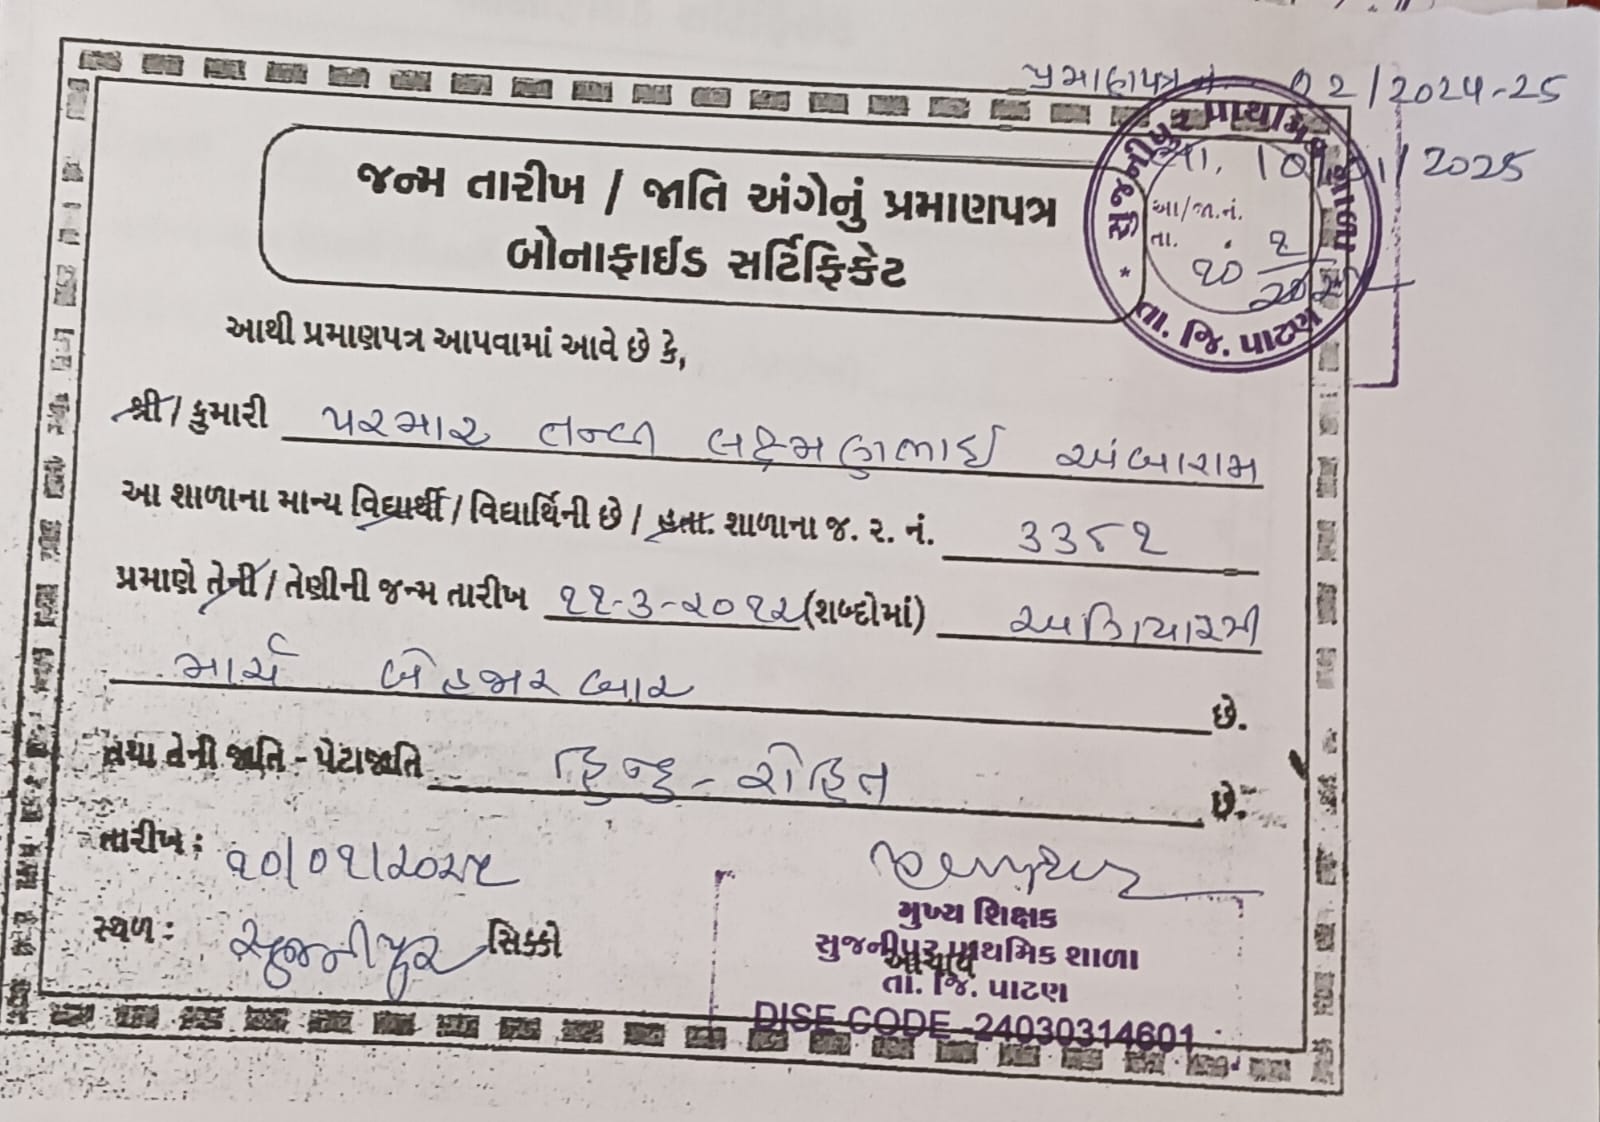 પ્રમાણપત્ર નં. 02/2024-25
તા. 10/01/2025
સુજનીપુર પ્રાથમિક શાળા
આ/જા.નં.
તા.
તા. જિ. પાટણ
જન્મ તારીખ / જાતિ અંગેનું પ્રમાણપત્ર
બોનાફાઈડ સર્ટિફિકેટ
આથી પ્રમાણપત્ર આપવામાં આવે છે કે,
શ્રી / કુમારી પરમાર તન્વી લક્ષ્મણભાઈ અંબારામ
આ શાળાના માન્ય વિદ્યાર્થી / વિદ્યાર્થિની છે / હતા. શાળાના જ. ર. નં. ૩૩૮૧
પ્રમાણે તેની / તેણીની જન્મ તારીખ ૧૧-૩-૨૦૧૨ (શબ્દોમાં) અગિયારમી
માર્ચ બે હજાર બાર છે.
તથા તેની જાતિ - પેટાજાતિ હિન્દુ - રોહિત છે.
તારીખ : ૧૦/૦૧/૨૦૨૫
સ્થળ : સુજનીપુર સિક્કો
મુખ્ય શિક્ષક
સુજનીપુર પ્રાથમિક શાળા
આચાર્ય
તા. જિ. પાટણ
DISE CODE -24030314601